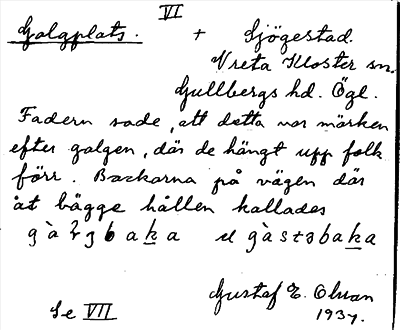 VI
Galgplats. + Sjögestad.
Vreta Kloster sn.
Gullbergs hd. Ögl.
Fadern sade, att detta var märken
efter galgen, där de hängt upp folk
förr. Backarna på vägen där
åt bägge hållen kallades
Gustaf E. Olsson
Se VII 1937.